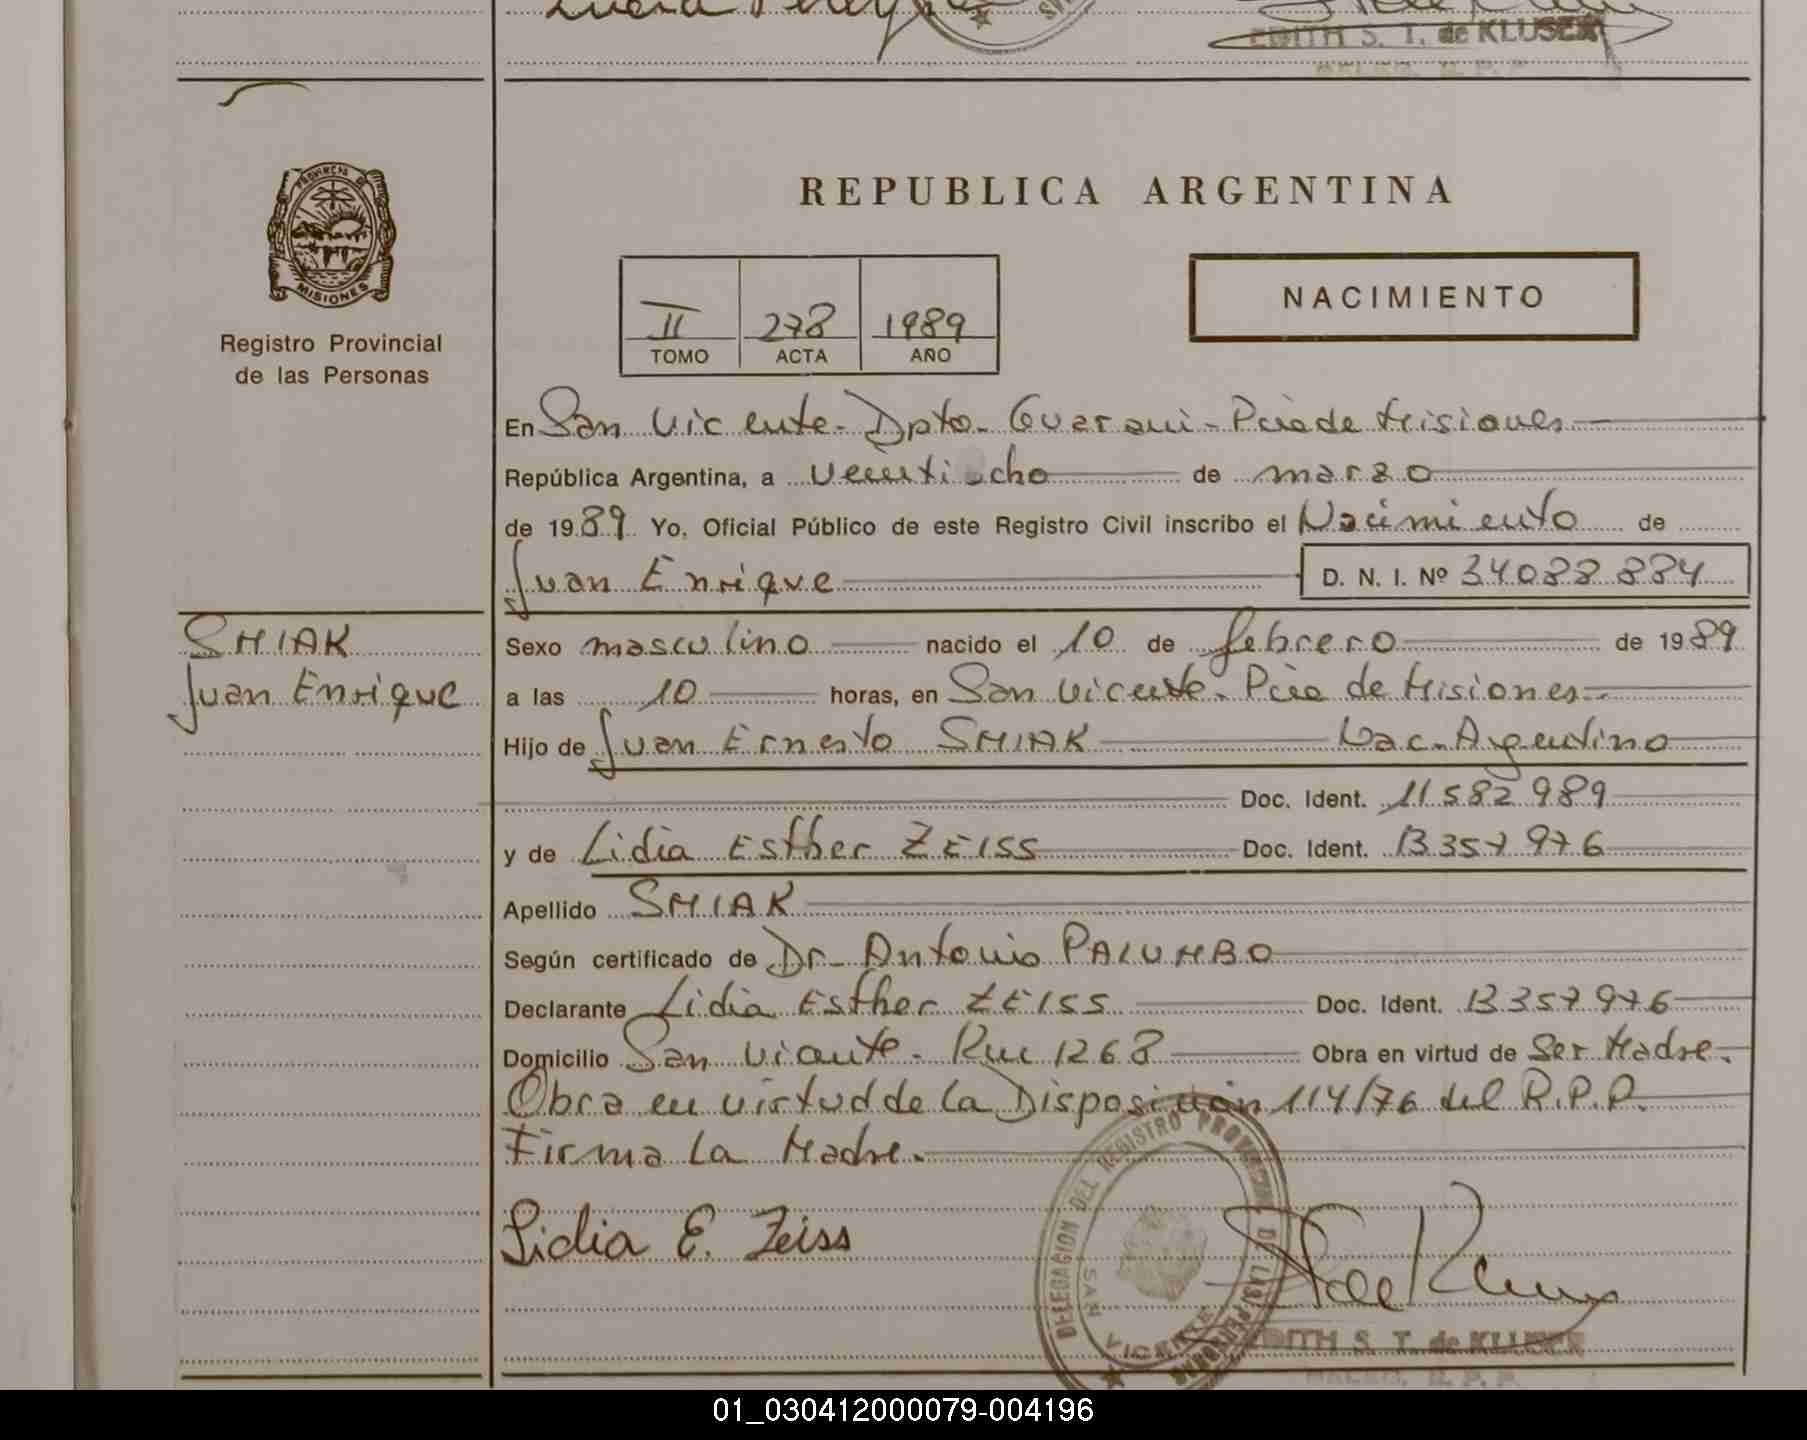 EDITH S. T. de KLUSER
REPUBLICA ARGENTINA
PROVINCIA DE
MISIONES
Registro Provincial
de las Personas
II 278 1989
TOMO ACTA AÑO
NACIMIENTO
En San Vicente - Dpto - Guarani - Pcia de Misiones
República Argentina, a veintiocho de marzo
de 1989 Yo, Oficial Público de este Registro Civil inscribo el Nacimiento de
Juan Enrique D. N. I. Nº 34088884
SMIAK
Juan Enrique
Sexo masculino nacido el 10 de febrero de 1989
a las 10 horas, en San Vicente - Pcia de Misiones
Hijo de Juan Ernesto SMIAK Nac. Argentino
Doc. Ident. 11582989
y de Lidia Esther ZEISS Doc. Ident. 13357976
Apellido SMIAK
Según certificado de Dr. Antonio PALUMBO
Declarante Lidia Esther ZEISS Doc. Ident. 13357976
Domicilio San Vicente - Km 1268 Obra en virtud de Ser Madre.
Obra en virtud de la Disposición 114/76 del R.P.P.
Firma La Madre.
Lidia E. Zeiss
DELEGACION DEL REGISTRO PROVINCIAL DE LAS PERSONAS
SAN VICENTE
EDITH S. T. de KLUSER
01_030412000079-004196